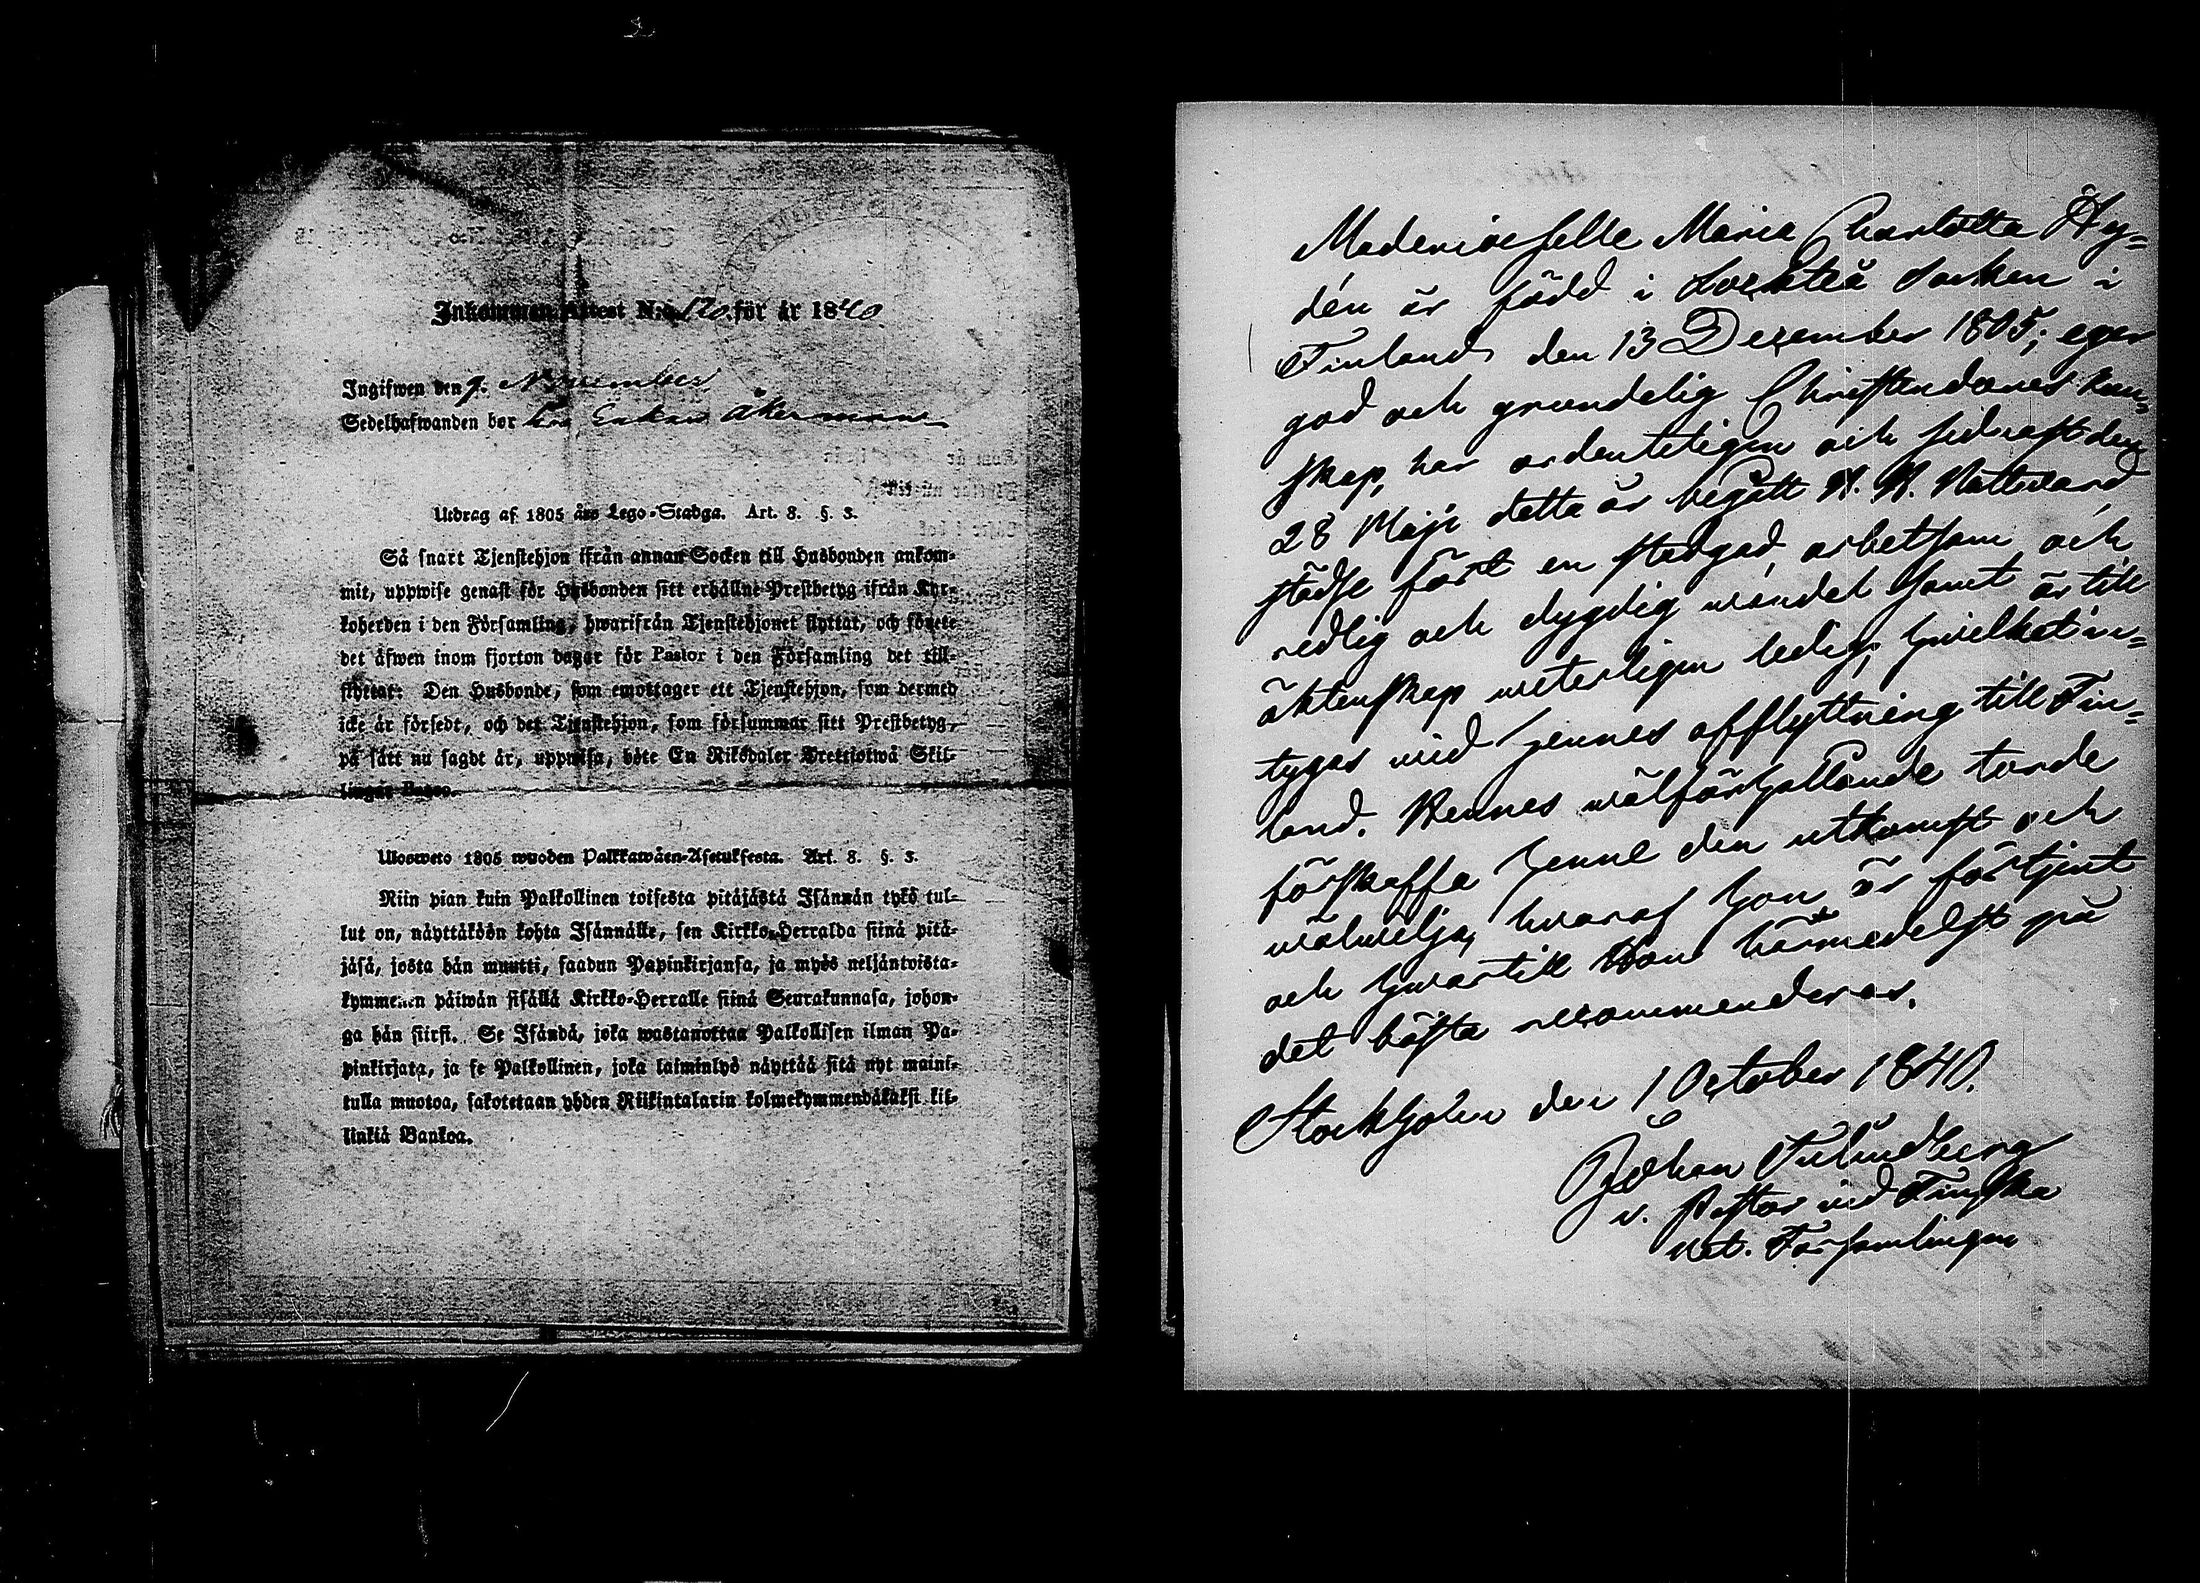 Inkommen Attest N:o 120 för år 1840
Ingifwen den 9. November
Sedelhafwanden bor hos Enkan Åkerman
Utdrag af 1805 års Lego-Stadga. Art. 8. §. 3.
Så snart Tjenstehjon ifrån annan Socken till Husbonden ankom-
mit, uppwise genast för Husbonden sitt erhållne Prestbetyg ifrån Kyr-
koherden i den Församling, hwarifrån Tjenstehjonet flyttat, och förete
det äfwen inom fjorton dagar för Pastor i den Församling det till-
flyttat: Den Husbonde, som emottager ett Tjenstehjon, som dermed
icke är försedt, och det Tjenstehjon, som försummar sitt Prestbetyg,
på sätt nu sagdt är, uppwisa, böte En Riksdaler Trettiotwå Skil-
lingar Banco.
Ulosweto 1805 wuoden Palkkawäen-Asetuksesta. Art. 8. §. 3.
Niin pian kuin Palkollinen toisesta pitäjästä Isännän tykö tul-
lut on, näyttäköön kohta Isännälle, sen Kirkko-Herralda siinä pitä-
jäsä, josta hän muutti, saadun Papinkirjansa, ja myös neljäntoista-
kymmenen päiwän sisällä Kirkko-Herralle siinä Seurakunnasa, johon-
ga hän siirsi. Se Isändä, joka wastanottaa Palkollisen ilman Pa-
pinkirjata, ja se Palkollinen, joka laiminlyö näyttää sitä nyt maini-
tulla muotoa, sakotetaan yhden Riikintalarin kolmekymmendäkaksi kil-
linkiä Bankoa.
Mademoiselle Maria Charlotta Hy-
dén är född i Lochteå Socken i
Finland den 13 December 1805; eger
god och grundelig Christendomskun-
skap, har ordenteligen och sednast den
28 Maji detta år begått H. H. Nattvard
städse fört en stadgad, arbetsam och
redlig och dygdig vandel samt är till
äktenskap veterligen ledig; hvilket in-
tygas vid hennes afflyttning till Fin-
land. Hennes välförhållande torde
förskaffa henne den utkomst och
välvilja, hvaraf hon är förtjent
och hvartill hon härmedelst på
det bästa recommenderas.
Stockholm den 1 October 1840.
Johan
v. Pastor vid Finska
Nat. Församlingen